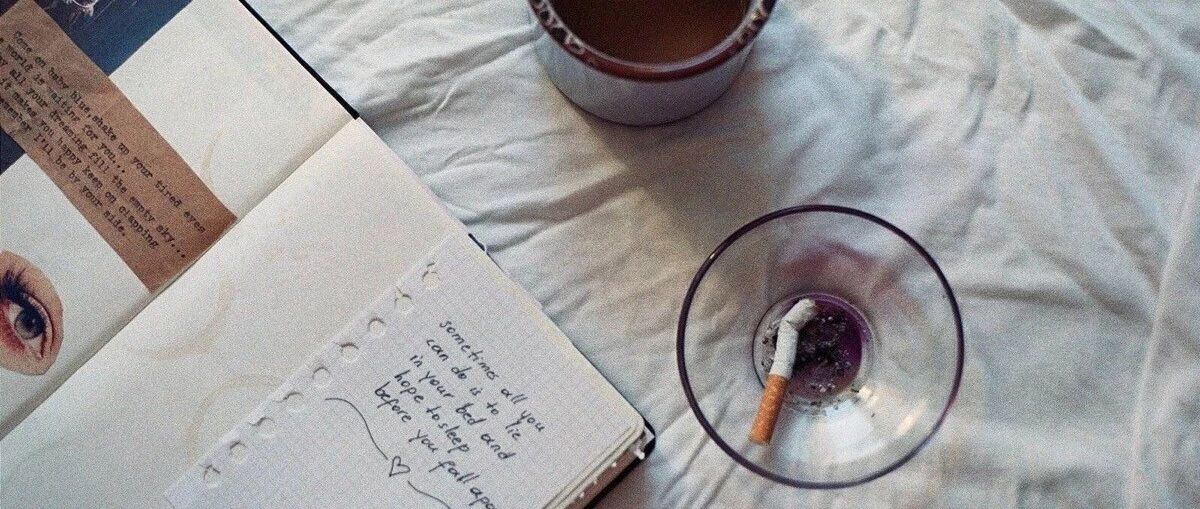 Come on baby blue, shake up your tired eyes
world is waiting for you...
all your dreaming fill the empty sky...
it makes you happy keep on clapping
I'll be by your side.
sometimes all you
can do is to lie
in your bed and
hope to sleep
before you fall